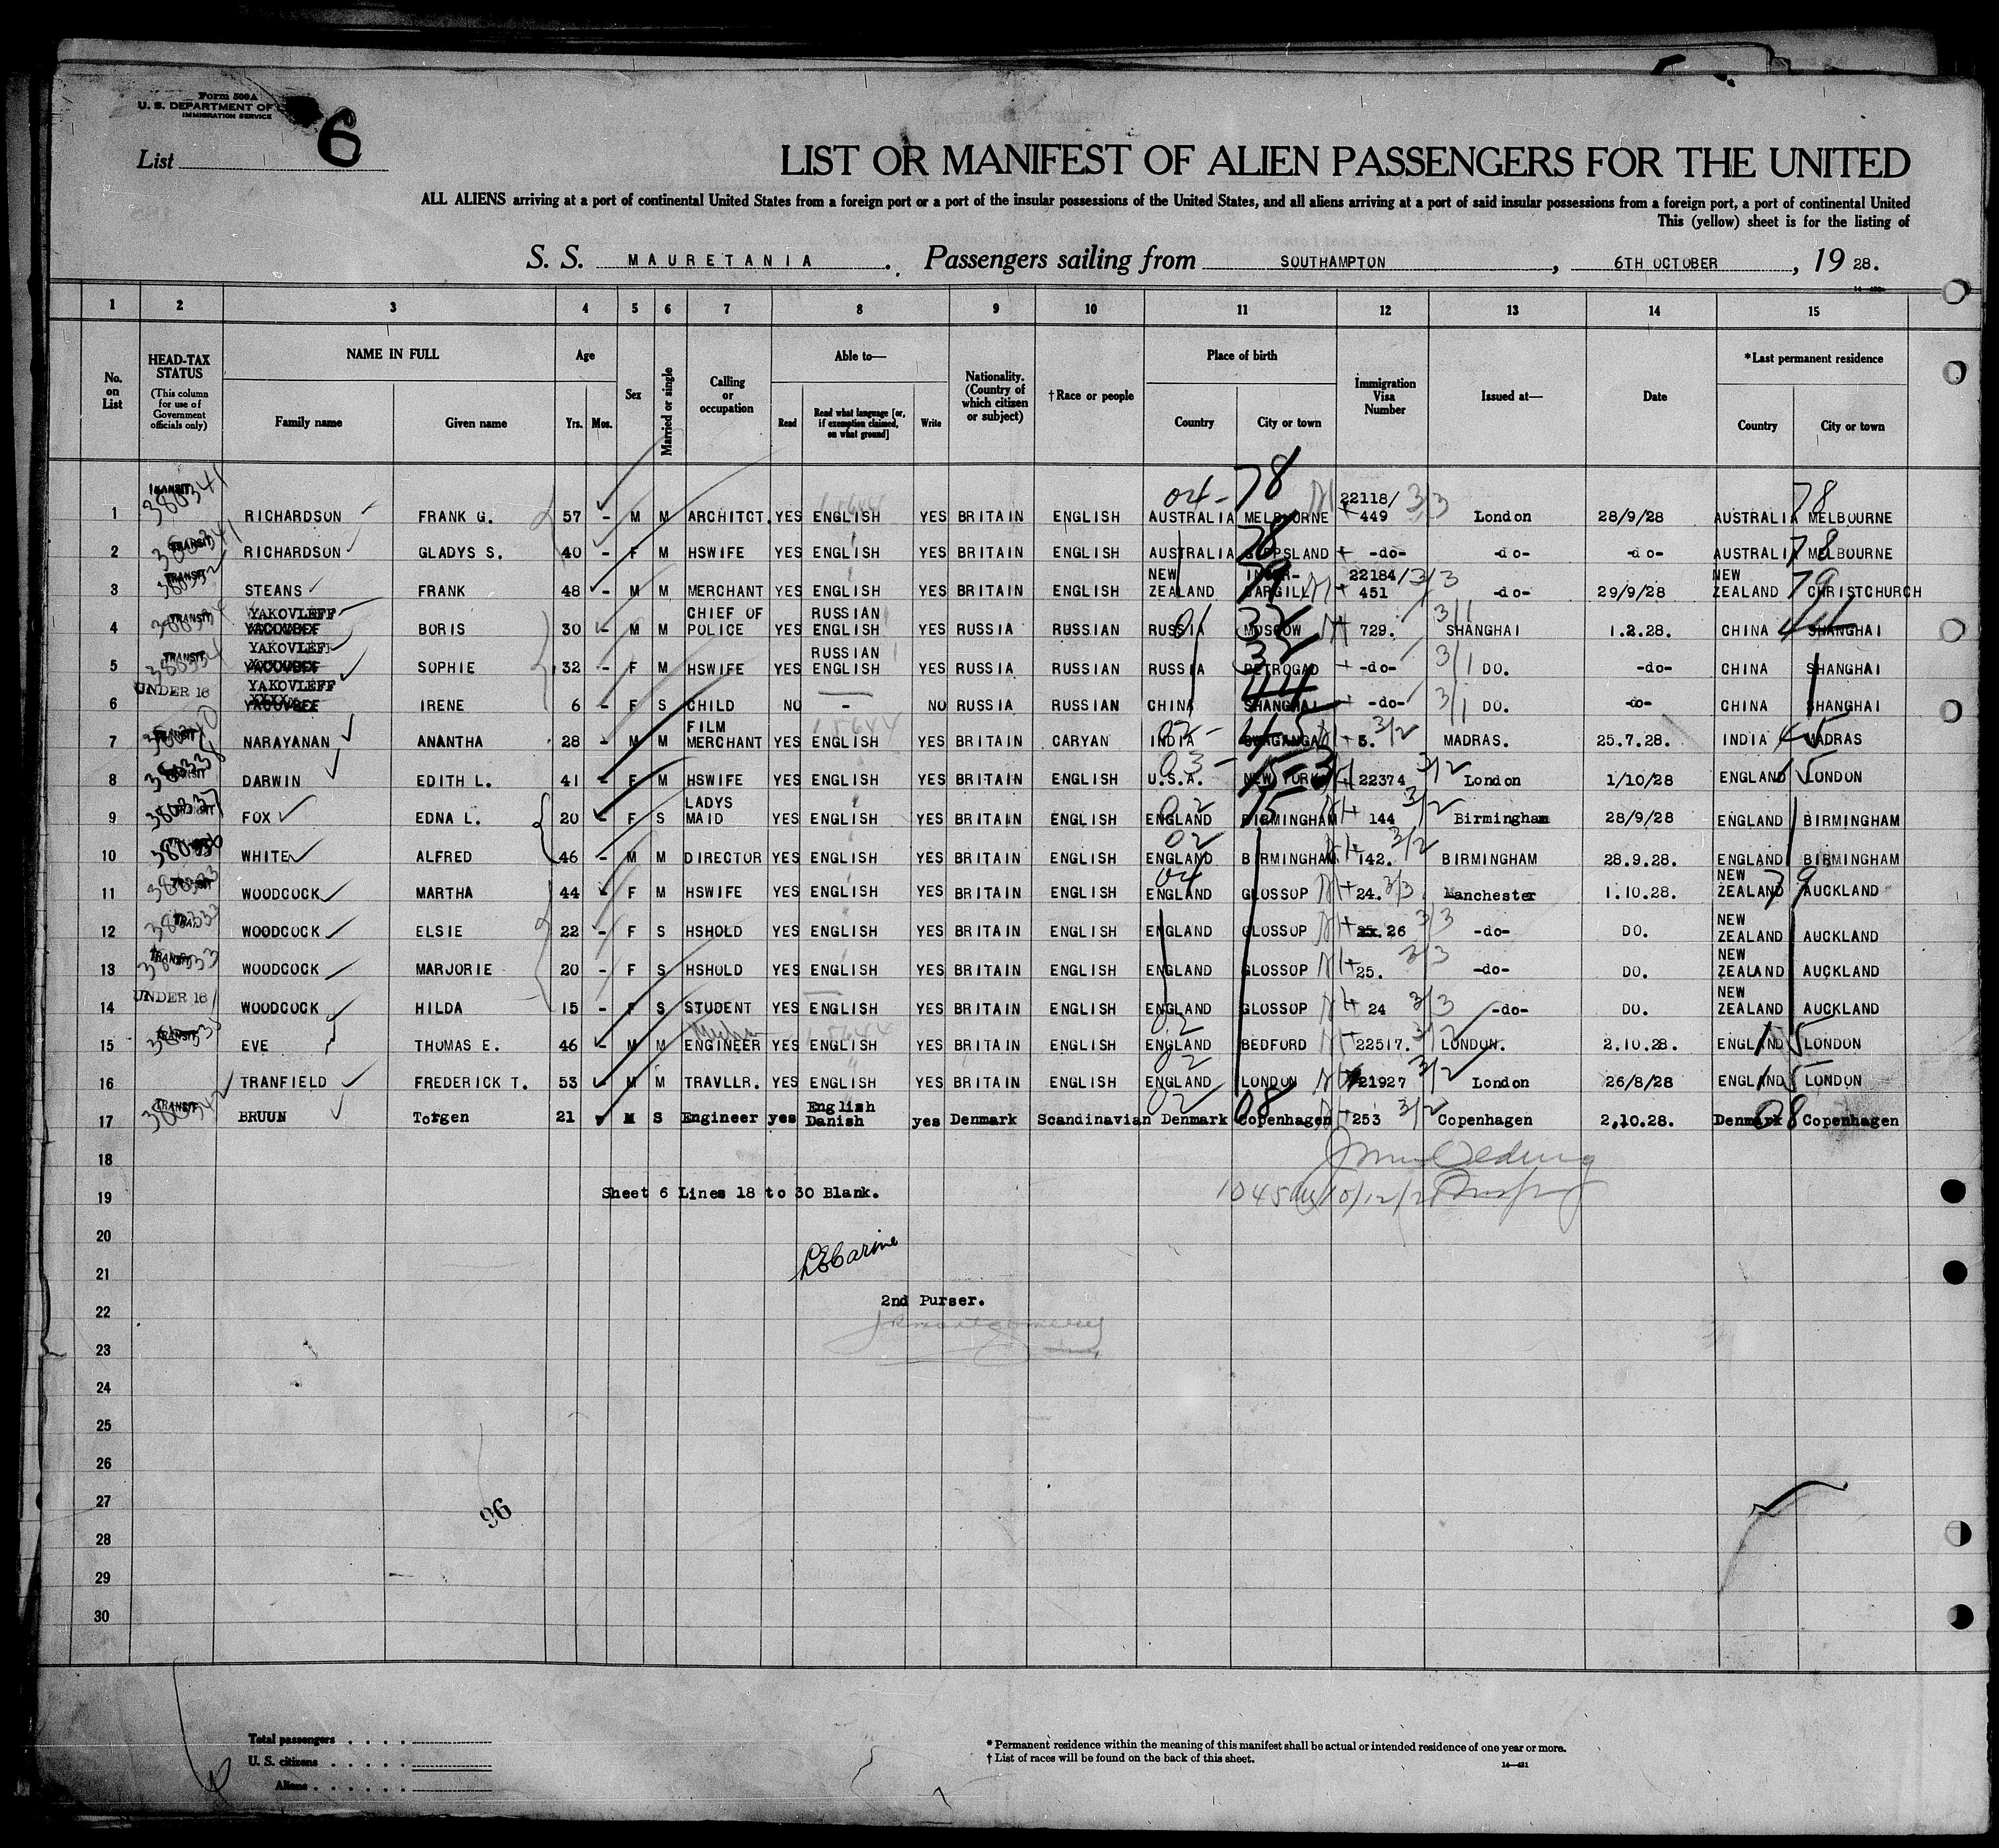 Form 500A
U. S. DEPARTMENT OF
IMMIGRATION SERVICE
List 6
LIST OR MANIFEST OF ALIEN PASSENGERS FOR THE UNITED
ALL ALIENS arriving at a port of continental United States from a foreign port or a port of the insular possessions of the United States, and all aliens arriving at a port of said insular possessions from a foreign port, a port of continental United
This (yellow) sheet is for the listing of
S. S. MAURETANIA. Passengers sailing from SOUTHAMPTON, 6TH OCTOBER, 19 28.
1 2 3 4 5 6 7 8 9 10 11 12 13 14 15
No. on List
HEAD-TAX STATUS (This column for use of Government officials only)
NAME IN FULL Family name Given name
Age Yrs. Mos.
Sex
Married or single
Calling or occupation
Able to— Read Read what language [or, if exemption claimed, on what ground] Write
Nationality. (Country of which citizen or subject)
† Race or people
Place of birth Country City or town
Immigration Visa Number
Issued at—
Date
*Last permanent residence Country City or town
1 TRANSIT 380341 RICHARDSON FRANK G. 57 - M M ARCHITCT. YES ENGLISH YES BRITAIN ENGLISH AUSTRALIA MELBOURNE 04-78 22118/449 3/3 London 28/9/28 AUSTRALIA MELBOURNE 78
2 TRANSIT 380341 RICHARDSON GLADYS S. 40 - F M HSWIFE YES ENGLISH YES BRITAIN ENGLISH AUSTRALIA GIPPSLAND 78 -do- -do- -do- AUSTRALIA MELBOURNE 78
3 TRANSIT STEANS FRANK 48 - M M MERCHANT YES ENGLISH YES BRITAIN ENGLISH NEW ZEALAND INVER-CARGILL 79 22184/451 3/3 -do- 29/9/28 NEW ZEALAND CHRISTCHURCH 79
4 TRANSIT YAKOVLEFF BORIS 30 - M M CHIEF OF POLICE YES RUSSIAN ENGLISH YES RUSSIA RUSSIAN RUSSIA MOSCOW 01 32 729. 3/1 SHANGHAI 1.2.28. CHINA SHANGHAI 44
5 TRANSIT YAKOVLEFF SOPHIE 32 - F M HSWIFE YES RUSSIAN ENGLISH YES RUSSIA RUSSIAN RUSSIA PETROGAD 32 -do- 3/1 DO. -do- CHINA SHANGHAI
6 UNDER 16 YAKOVLEFF IRENE 6 - F S CHILD NO - NO RUSSIA RUSSIAN CHINA SHANGHAI 44 -do- 3/1 DO. -do- CHINA SHANGHAI
7 TRANSIT NARAYANAN ANANTHA 28 - M M FILM MERCHANT YES ENGLISH YES BRITAIN CARYAN INDIA 02-45 5. 3/2 MADRAS. 25.7.28. INDIA MADRAS 45
8 TRANSIT 380338 DARWIN EDITH L. 41 - F M HSWIFE YES ENGLISH YES BRITAIN ENGLISH U.S.A. NEW YORK 03- 22374 3/2 London 1/10/28 ENGLAND LONDON 15
9 380337 FOX EDNA L. 20 - F S LADYS MAID YES ENGLISH YES BRITAIN ENGLISH ENGLAND BIRMINGHAM 02 15 144 3/2 Birmingham 28/9/28 ENGLAND BIRMINGHAM
10 WHITE ALFRED 46 - M M DIRECTOR YES ENGLISH YES BRITAIN ENGLISH ENGLAND BIRMINGHAM 02 142. 3/2 BIRMINGHAM 28.9.28. ENGLAND BIRMINGHAM
11 380333 WOODCOCK MARTHA 44 - F M HSWIFE YES ENGLISH YES BRITAIN ENGLISH ENGLAND GLOSSOP 04 24. 3/3 Manchester 1.10.28. NEW ZEALAND AUCKLAND 79
12 380333 WOODCOCK ELSIE 22 - F S HSHOLD YES ENGLISH YES BRITAIN ENGLISH ENGLAND GLOSSOP 25. 26 3/3 -do- DO. NEW ZEALAND AUCKLAND
13 TRANSIT 380333 WOODCOCK MARJORIE 20 - F S HSHOLD YES ENGLISH YES BRITAIN ENGLISH ENGLAND GLOSSOP 25. 3/3 -do- DO. NEW ZEALAND AUCKLAND
14 UNDER 16 WOODCOCK HILDA 15 - F S STUDENT YES ENGLISH YES BRITAIN ENGLISH ENGLAND GLOSSOP 24 3/3 -do- DO. NEW ZEALAND AUCKLAND
15 TRANSIT EVE THOMAS E. 46 - M M ENGINEER YES ENGLISH YES BRITAIN ENGLISH ENGLAND BEDFORD 02 22517. 3/2 LONDON. 2.10.28. ENGLAND LONDON 15
16 TRANFIELD FREDERICK T. 53 - M M TRAVLLR. YES ENGLISH YES BRITAIN ENGLISH ENGLAND LONDON 02 21927 3/2 London 26/8/28 ENGLAND LONDON 15
17 TRANSIT 380342 BRUUN Torgen 21 M S Engineer yes English Danish yes Denmark Scandinavian Denmark Copenhagen 02 08 253 3/2 Copenhagen 2.10.28. Denmark Copenhagen 08
18
19 Sheet 6 Lines 18 to 30 Blank.
20
21
22 2nd Purser.
23
24
25
26
27
96
28
29
30
Total passengers
U. S. citizens
Aliens
* Permanent residence within the meaning of this manifest shall be actual or intended residence of one year or more.
† List of races will be found on the back of this sheet.
14—431